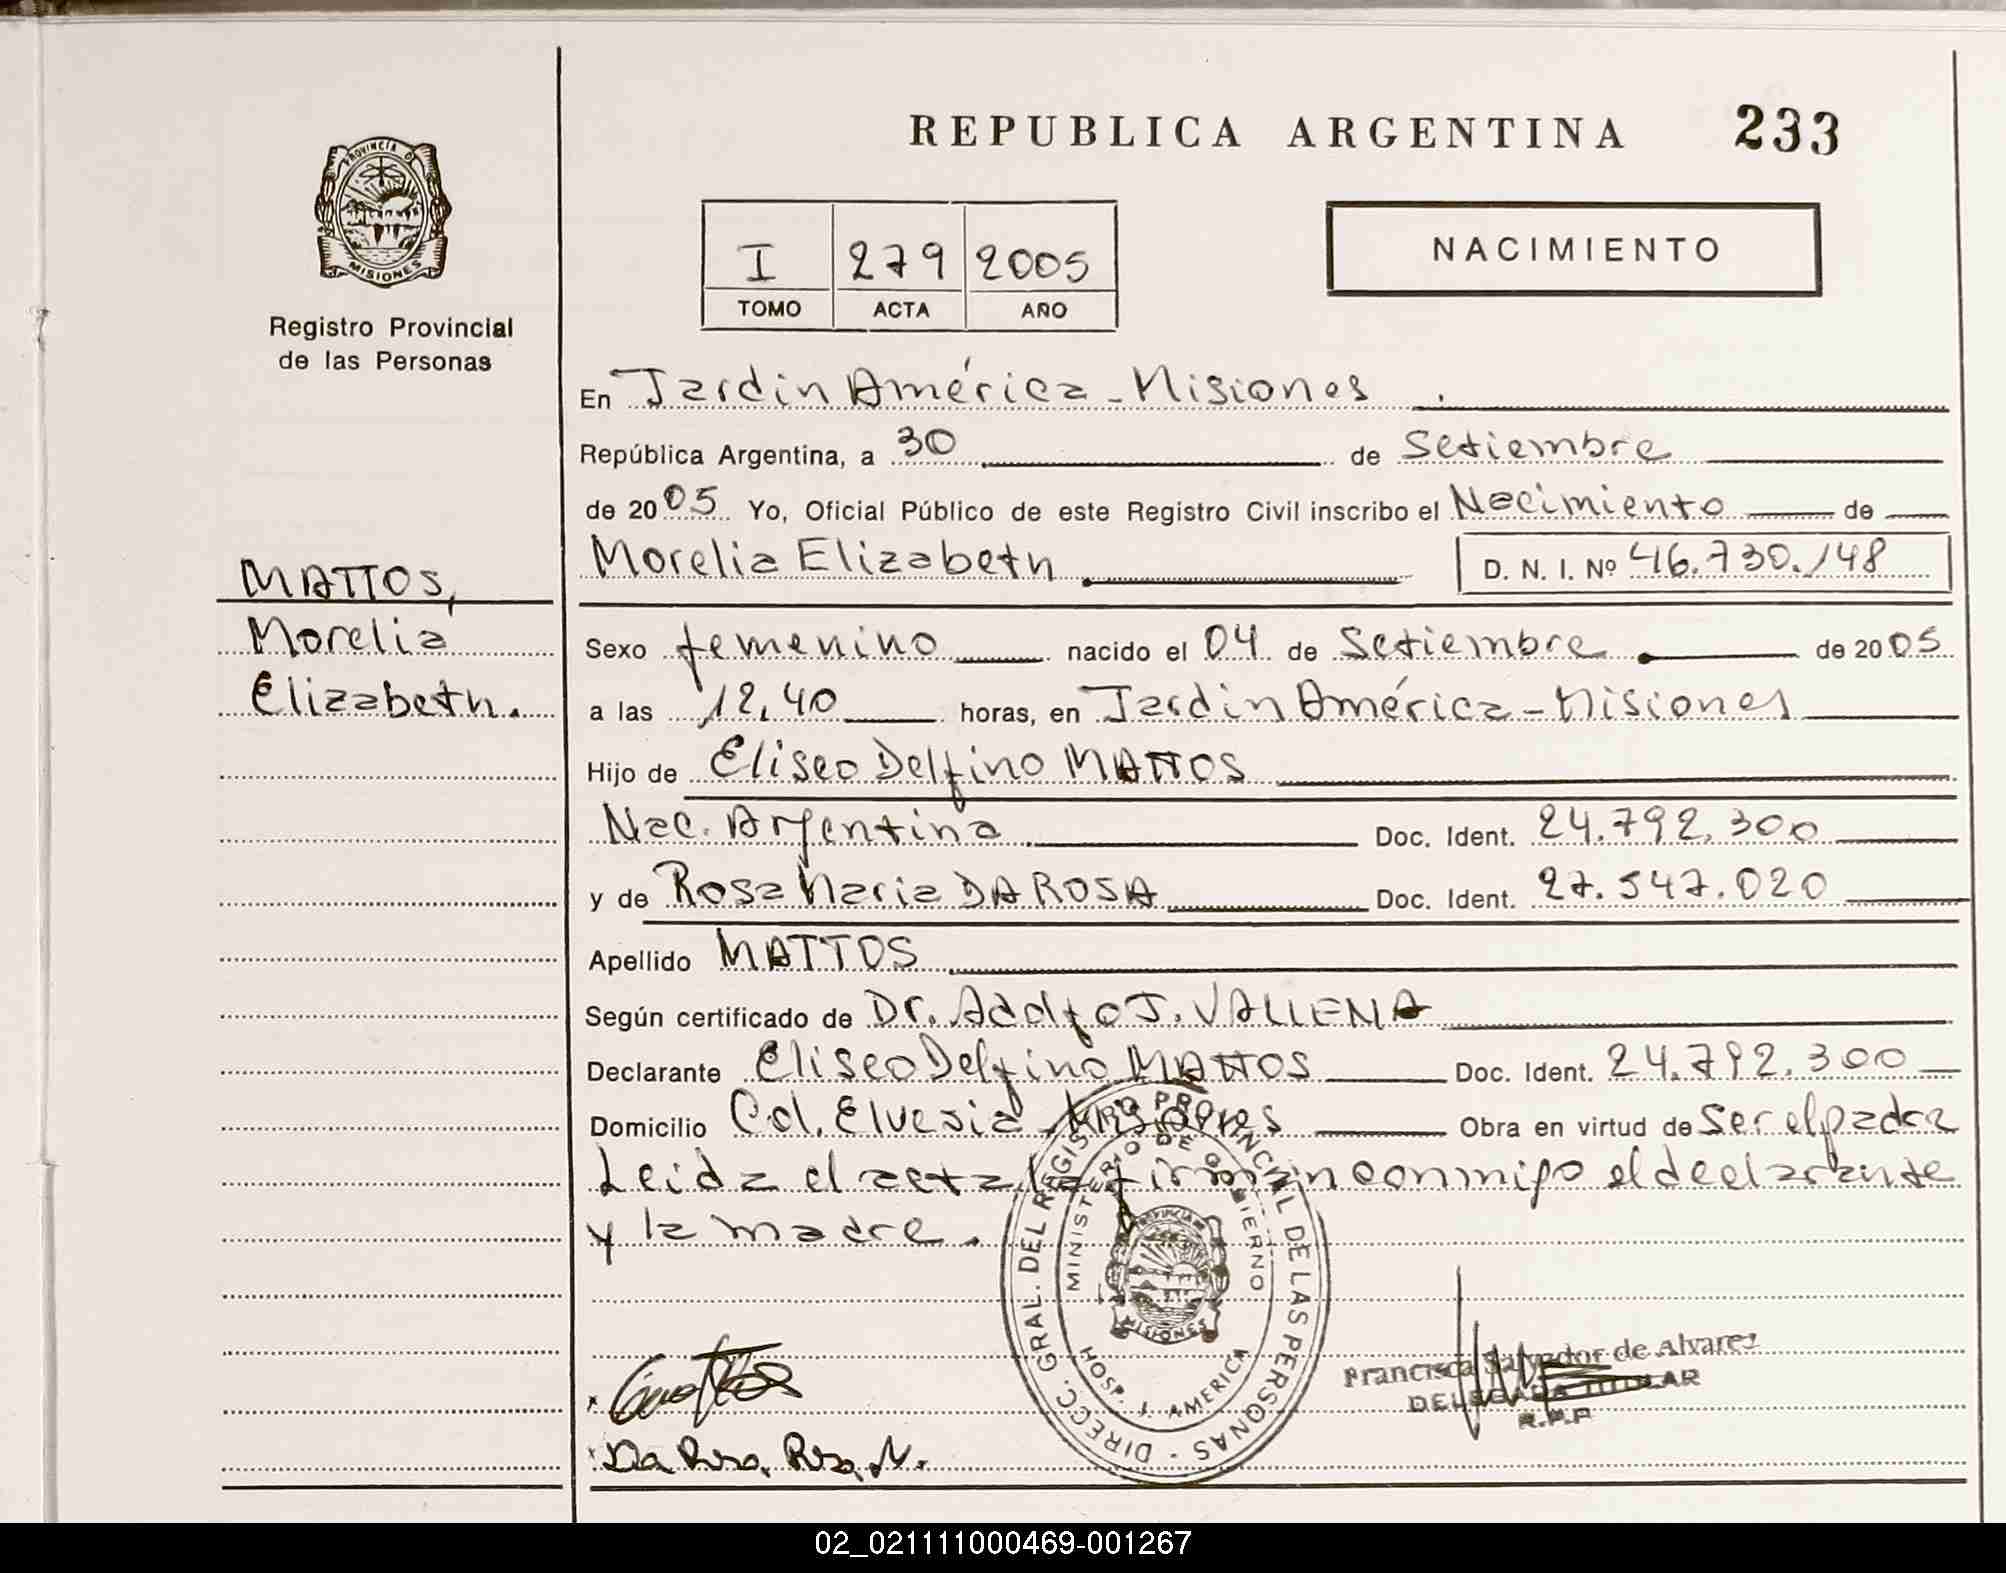 REPUBLICA ARGENTINA 233
PROVINCIA DE
MISIONES
Registro Provincial
de las Personas
I 279 2005
TOMO ACTA AÑO
NACIMIENTO
En Jardin América - Misiones
República Argentina, a 30 de Setiembre
de 2005 Yo, Oficial Público de este Registro Civil inscribo el Nacimiento de
Morelia Elizabeth D. N. I. Nº 46.730.148
MATTOS,
Morelia
Elizabeth.
Sexo femenino nacido el 04 de Setiembre de 2005
a las 12,40 horas, en Jardin América - Misiones
Hijo de Eliseo Delfino MATTOS
Nac. Argentina Doc. Ident. 24.792.300
y de Rosa Maria DA ROSA Doc. Ident. 27.547.020
Apellido MATTOS
Según certificado de Dr. Adolfo J. VALLENA
Declarante Eliseo Delfino MATTOS Doc. Ident. 24.792.300
Domicilio Col. Elvesia - Misiones Obra en virtud de Ser el padre
Leida el acta la firman conmigo el declarante
y la madre.
DIRECC. GRAL. DEL REGISTRO PROVINCIAL DE LAS PERSONAS -
MINISTERIO DE GOBIERNO
MISIONES
HOSP. J. AMERICA
Francisca Salvador de Alvarez
DELEGADA TITULAR
R.P.P
Da Rosa, Rosa, M.
02_021111000469-001267